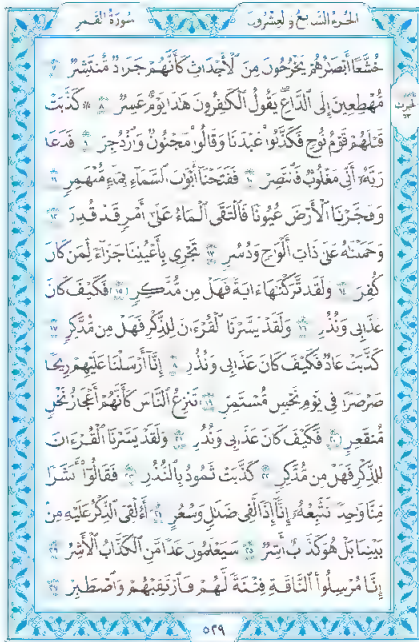 الجزء السابع والعشرون
سورة القمر
خُشَّعًا أَبْصَٰرُهُمْ يَخْرُجُونَ مِنَ ٱلْأَجْدَاثِ كَأَنَّهُمْ جَرَادٌ مُّنتَشِرٌ ٧
مُّهْطِعِينَ إِلَى ٱلدَّاعِ يَقُولُ ٱلْكَٰفِرُونَ هَٰذَا يَوْمٌ عَسِرٌ ٨ ۞ كَذَّبَتْ
قَبْلَهُمْ قَوْمُ نُوحٍ فَكَذَّبُوا۟ عَبْدَنَا وَقَالُوا۟ مَجْنُونٌ وَٱزْدُجِرَ ٩ فَدَعَا
رَبَّهُۥٓ أَنِّى مَغْلُوبٌ فَٱنتَصِرْ ١٠ فَفَتَحْنَآ أَبْوَٰبَ ٱلسَّمَآءِ بِمَآءٍ مُّنْهَمِرٍ ١١
وَفَجَّرْنَا ٱلْأَرْضَ عُيُونًا فَٱلْتَقَى ٱلْمَآءُ عَلَىٰٓ أَمْرٍ قَدْ قُدِرَ ١٢
وَحَمَلْنَٰهُ عَلَىٰ ذَاتِ أَلْوَٰحٍ وَدُسُرٍ ١٣ تَجْرِى بِأَعْيُنِنَا جَزَآءً لِّمَن كَانَ
كُفِرَ ١٤ وَلَقَد تَّرَكْنَٰهَآ ءَايَةً فَهَلْ مِن مُّدَّكِرٍ ١٥ فَكَيْفَ كَانَ
عَذَابِى وَنُذُرِ ١٦ وَلَقَدْ يَسَّرْنَا ٱلْقُرْءَانَ لِلذِّكْرِ فَهَلْ مِن مُّدَّكِرٍ ١٧
كَذَّبَتْ عَادٌ فَكَيْفَ كَانَ عَذَابِى وَنُذُرِ ١٨ إِنَّآ أَرْسَلْنَا عَلَيْهِمْ رِيحًا
صَرْصَرًا فِى يَوْمِ نَحْسٍ مُّسْتَمِرٍّ ١٩ تَنزِعُ ٱلنَّاسَ كَأَنَّهُمْ أَعْجَازُ نَخْلٍ
مُّنقَعِرٍ ٢٠ فَكَيْفَ كَانَ عَذَابِى وَنُذُرِ ٢١ وَلَقَدْ يَسَّرْنَا ٱلْقُرْءَانَ
لِلذِّكْرِ فَهَلْ مِن مُّدَّكِرٍ ٢٢ كَذَّبَتْ ثَمُودُ بِٱلنُّذُرِ ٢٣ فَقَالُوٓا۟ أَبَشَرًا
مِّنَّا وَٰحِدًا نَّتَّبِعُهُۥٓ إِنَّآ إِذًا لَّفِى ضَلَٰلٍ وَسُعُرٍ ٢٤ أَءُلْقِىَ ٱلذِّكْرُ عَلَيْهِ مِنۢ
بَيْنِنَا بَلْ هُوَ كَذَّابٌ أَشِرٌ ٢٥ سَيَعْلَمُونَ غَدًا مَّنِ ٱلْكَذَّابُ ٱلْأَشِرُ ٢٦
إِنَّا مُرْسِلُوا۟ ٱلنَّاقَةِ فِتْنَةً لَّهُمْ فَٱرْتَقِبْهُمْ وَٱصْطَبِرْ ٢٧
٥٢٩